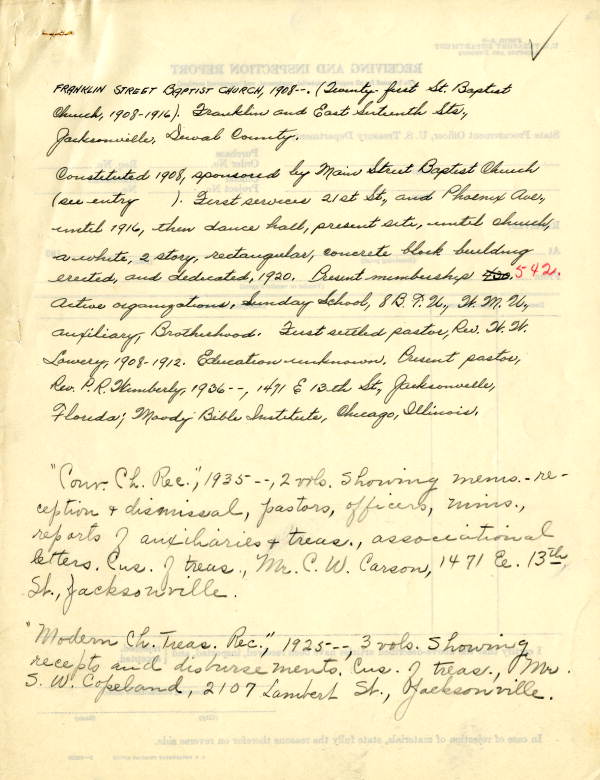 FRANKLIN STREET BAPTIST CHURCH, 1908--. (Twenty first St. Baptist
Church, 1908-1916). Franklin and East Sixteenth Sts.,
Jacksonville, Duval County.
Constituted 1908, sponsored by Main Street Baptist Church
(see entry ). First services 21st St., and Phoenix Ave.,
until 1916, then dance hall, present site, until church,
a white, 2 story, rectangular, concrete block building
erected, and dedicated, 1920. Present membership 542.
Active organizations, Sunday School, 8 B.T.U., W.M.U.,
auxiliary, Brotherhood. First settled pastor, Rev. W.W.
Lowery, 1908-1912. Education unknown. Present pastor,
Rev. P.R. Wimberly, 1936--, 1471 E 13th St., Jacksonville,
Florida; Moody Bible Institute, Chicago, Illinois.
"Conv. Ch. Rec.", 1935--, 2 vols. Showing mems.-re-
ception & dismissal, pastors, officers, mins.,
reports of auxiliaries & treas., associational
letters. Cus. of treas., Mr. C. W. Carson, 1471 E. 13th
St., Jacksonville.
"Modern Ch. Treas. Rec.", 1925--, 3 vols. Showing
recepts and disbursements. Cus. of treas., Mr.
S. W. Copeland, 2107 Lambert St., Jacksonville.
RECEIVING AND INSPECTION REPORT
State Procurement Officer, U. S. Treasury Department
Purchase
Order No.
Req. No.
Project
In case of rejection of materials, state fully the reasons therefor on reverse side.